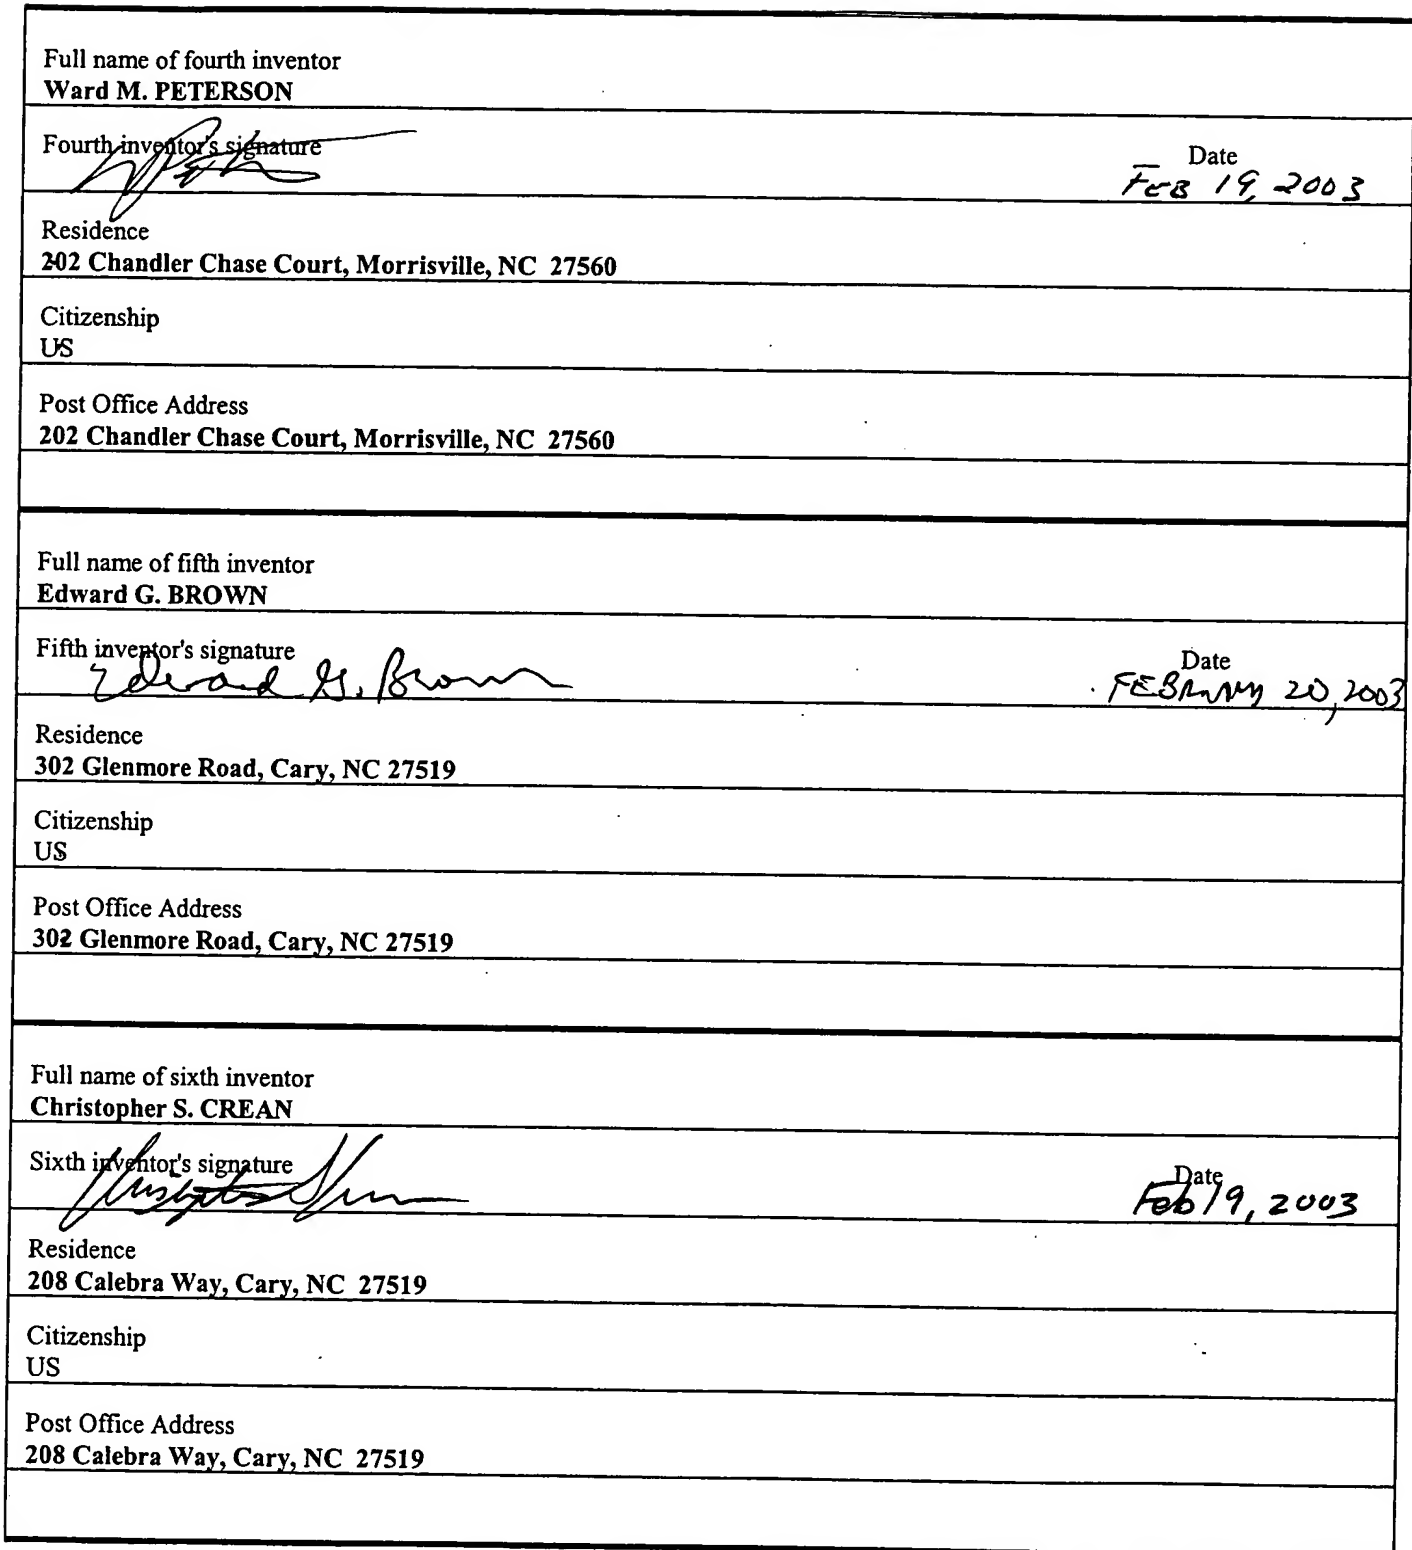 Full name of fourth inventor
Ward M. PETERSON
Fourth inventor's signature
Date
FEB 19, 2003
Residence
202 Chandler Chase Court, Morrisville, NC 27560
Citizenship
US
Post Office Address
202 Chandler Chase Court, Morrisville, NC 27560
Full name of fifth inventor
Edward G. BROWN
Fifth inventor's signature
Edward G. Brown
Date
FEBRUARY 20, 2003
Residence
302 Glenmore Road, Cary, NC 27519
Citizenship
US
Post Office Address
302 Glenmore Road, Cary, NC 27519
Full name of sixth inventor
Christopher S. CREAN
Sixth inventor's signature
Date
Feb 19, 2003
Residence
208 Calebra Way, Cary, NC 27519
Citizenship
US
Post Office Address
208 Calebra Way, Cary, NC 27519